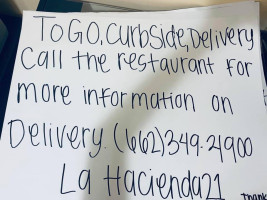 To GO, CurbSide, Delivery
Call the restaurant for
more information on
Delivery. (662)349-2900
La Hacienda21
Thank